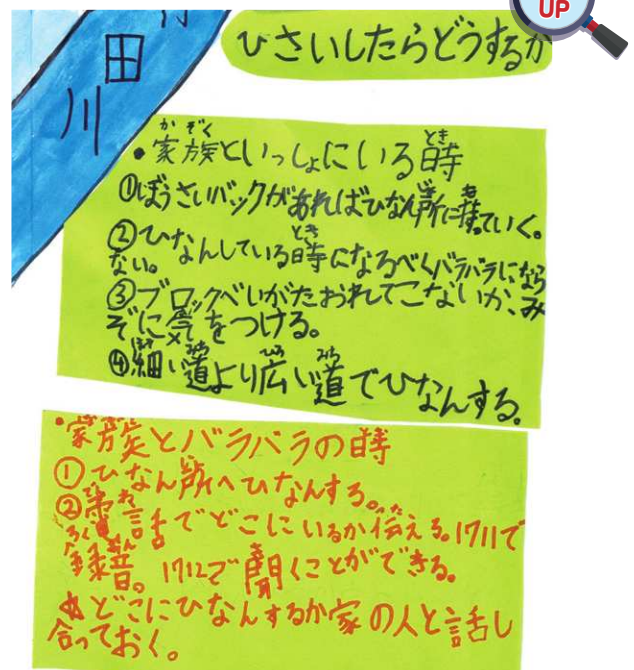 UP
田
川
ひさいしたらどうするか
・家族といっしょにいる時
かぞく
とき
①ぼうさいバックがあればひなん所に持っていく。
②ひなんしている時になるべくバラバラになら
とき
ない。
③ブロックべいがたおれてこないか、み
ぞに気をつける。
④細い道より広い道でひなんする。
ほそ
みち
ひろ
みち
・家族とバラバラの時
①ひなん所へひなんする。
②電話でどこにいるか伝える。1711で
録音。1712で聞くことができる。
どこにひなんするか家の人と話し
合っておく。